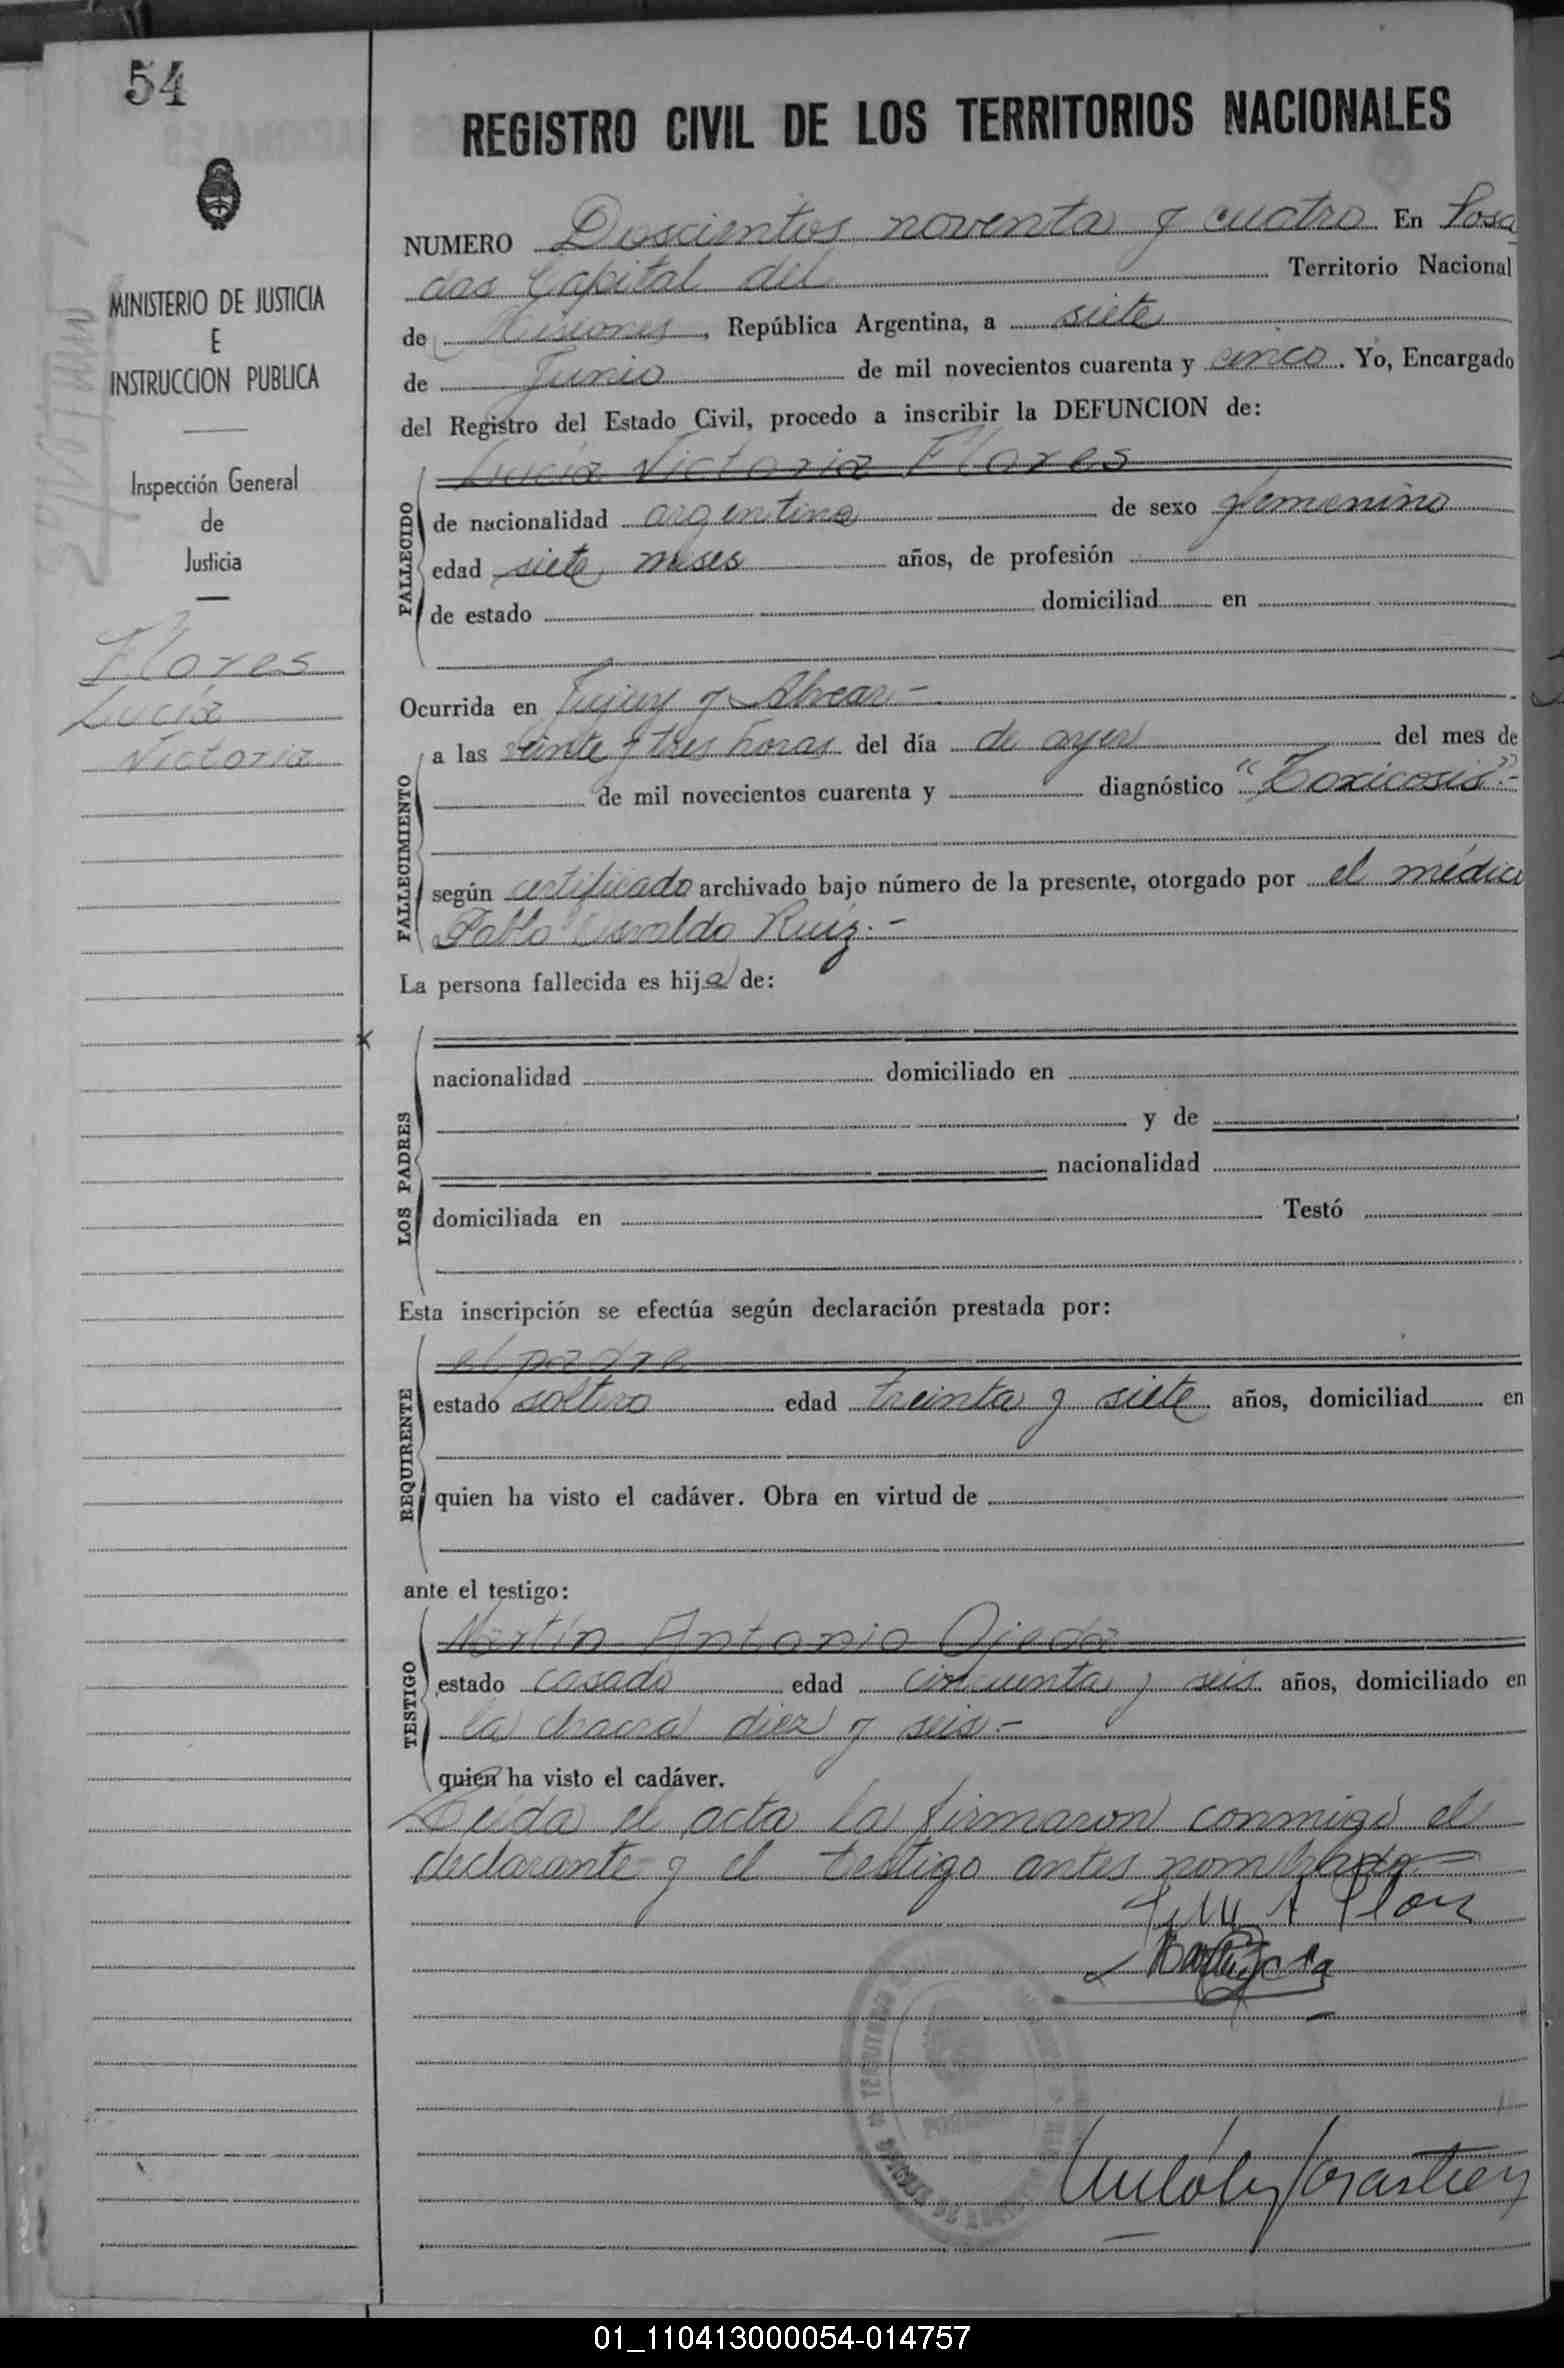 54
REGISTRO CIVIL DE LOS TERRITORIOS NACIONALES
MINISTERIO DE JUSTICIA
E
INSTRUCCION PUBLICA
Inspección General
de
Justicia
Flores
Lucía
Victoria
NUMERO Doscientos noventa y cuatro En Posa
das Capital del Territorio Nacional
de Misiones, República Argentina, a siete
de Junio de mil novecientos cuarenta y cinco. Yo, Encargado
del Registro del Estado Civil, procedo a inscribir la DEFUNCION de:
FALLECIDO
Lucía Victoria Flores
de nacionalidad argentina de sexo femenino
edad siete meses años, de profesión
de estado domiciliad en
Ocurrida en Jujuy y Alvear.-
FALLECIMIENTO
a las veinte y tres horas del día de ayer del mes de
de mil novecientos cuarenta y diagnóstico "Toxicosis".-
según certificado archivado bajo número de la presente, otorgado por el médico
Pablo Osvaldo Ruíz.-
La persona fallecida es hija de:
LOS PADRES
nacionalidad domiciliado en
y de
nacionalidad
domiciliada en Testó
Esta inscripción se efectúa según declaración prestada por:
REQUIRENTE
el padre
estado soltero edad treinta y siete años, domiciliad en
quien ha visto el cadáver. Obra en virtud de
ante el testigo:
TESTIGO
Martín Antonio Ojeda
estado casado edad cincuenta y seis años, domiciliado en
la chacra diez y seis.-
quien ha visto el cadáver.
Leída el acta la firmaron conmigo el
declarante y el testigo antes nombrado
01_110413000054-014757